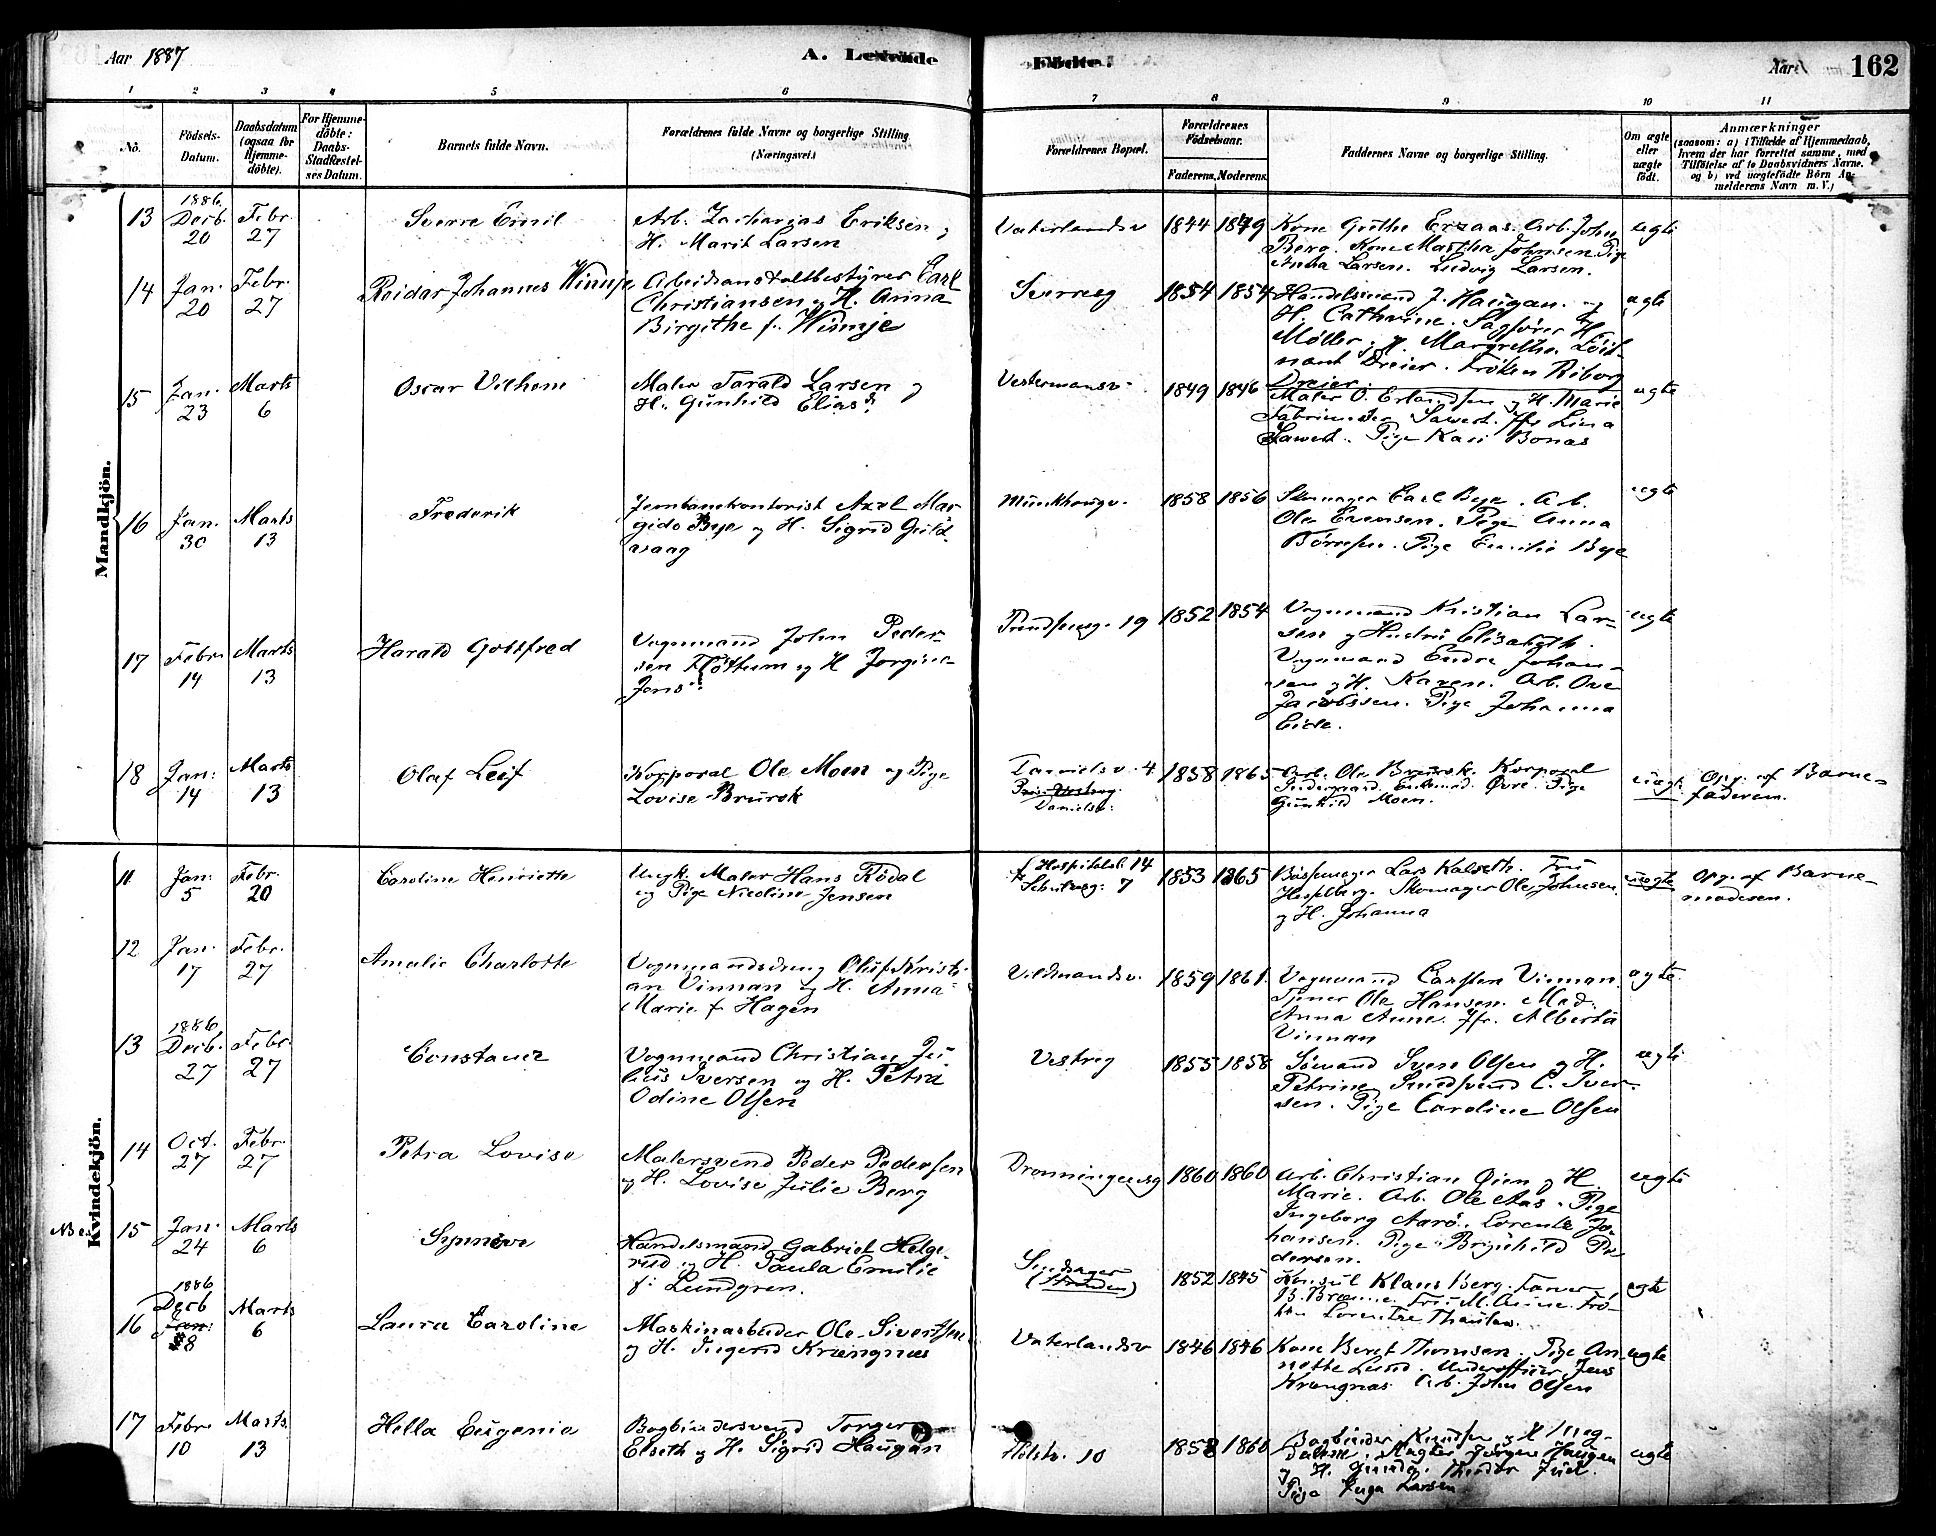 Aar 1887
A. Levende
Födte.
Aar
162
1 2 3 4 5 6 7 8 9 10 11
No.
Födsels-
Datum.
Daabsdatum
(ogsaa for
Hjemme-
döbte).
For Hjemme-
döbte:
Daabs-
Stadfæstel-
ses Datum.
Barnets fulde Navn.
Forældrenes fulde Navne og borgerlige Stilling
(Næringsvei.)
Forældrenes Bopæl.
Forældrenes
Födselsaar.
Faderens. Moderens.
Faddernes Navne og borgerlige Stilling.
Om ægte
eller
uægte
födt.
Anmærkninger
(saasom: a) i Tilfælde af Hjemmedaab,
hvem der har forrettet samme, med
Tilföielse af to Daabsvidners Navne,
og b) ved uægtefödte Börn An-
melderens Navn m. V.)
Mandkjön.
13
1886
Decb.
20
Febr.
27
Sverre Emil
Arb. Zacharias Eriksen og
H. Marit Larsen
Vaterlandsv
1844 1849
Kone Guthe Erzaas. Arb. John
Berg. Kone Martha Johnsen. Pige
Anna Larsen. Ludvig Larsen.
ægte
14
Jan.
20
Febr.
27
Reidar Johannes Winnje
Arbeidsanstaltbestyrer Carl
Christiansen og H. Anna
Birgithe f. Winnje
Sverresg
1854 1854
Handelsmand J. Haugan og
H. Cathrine. Sagförer H.
Møller og H. Margrethe. Löit-
nant Dreier. Fröken Riborg
Dreier.
ægte
15
Jan.
23
Marts
6
Oscar Vilhem
Maler Tarald Larsen og
H. Gunhild Eliasd.
Vestermansv.
1849 1846
Maler O. Erlandsen og H. Marie
Lina
Pige Kari Bonas
ægte
16
Jan.
30
Marts
13
Frederik
Jernbanekontorist Axel Mar-
gido Bye og H. Sigrid Guld-
vaag
Munkhaugv.
1858 1856
Skomager Carl Bye. Arb.
Ole Evensen. Pige Anna
Börresen. Pige Emilie Bye
ægte
17
Febr
14
Marts
13
Harald Gotfred
Vognmand John Peder-
sen Flöttum og H. Jorgine
Jens
19
1852 1854
Vognmand Kristian Lar-
sen og Hustru Elisabeth.
Vognmand Endre Johan-
sen og H. Karen. Arb. Ove
Jacobssen. Pige Johanna
Eide.
ægte
18
Jan:
14
Marts
13
Olaf Leif
Korporal Ole Moen og Pige
Lovise Brurok
Danielsv. 4
Danielsv.
1858 1865
Arb. Ole Brurok. Korporal
Övre. Pige
Gunhild Moen.
uægte
Opg. af Barne-
faderen.
Kvindekjön.
11
Jan:
5
Febr.
20
Caroline Henriette
Ungk. Maler Hans Flödal
og Pige Nicoline Jensen
Hospitalsl. 14
7
1853 1865
Bössemager Lars Kalseth. Fru
Hesselberg. Skomager Ole Johnsen
og H. Johanna
uægte
Opg. af Barne-
moderen.
12
Jan.
17
Febr.
27
Amalie Charlotte
Vognmandsdreng Oluf Kristi-
an Vinnan og H. Anna
Marie f. Hagen
Vildmandsv.
1859 1861
Vognmand Carsten Vinnan
Tjener Ole Hansen. Mad.
Anna Aune. Jfr. Alberta
Vinnan
ægte
13
1886
Decb.
27
Febr.
27
Constance
Vognmand Christian Ju-
lius Iversen og H. Petra
Odine Olsen
Vestreg
1855 1858
Sömand Sven Olsen og H.
Petrine. Smedsvend C. Iver-
sen. Pige Caroline Olsen
ægte
14
Oct.
27
Febr.
27
Petra Lovise
Malersvend Peder Pedersen
og H. Lovise Julie Berg
Dronningensg
1860 1860
Arb. Christian Öien og H.
Marie. Arb. Ole Aas. Pige
Ingeborg Aarö. Lorents Jo-
hansen. Pige Brynhild Pe-
dersen.
ægte
15
Jan.
24
Marts
6
Synnöve
Handelsmand Gabriel Helge-
rud og H. Paula Emilie
f. Lundgren.
(Stranden)
1852 1845
Konsul Klaus Berg.
Frö-
ken Lorentze Thaulow.
ægte
16
1886
Decb
Jan:
8
Marts
6
Laura Caroline
Maskinarbeider Ole Sivertsen
og H. Ingerid Krangnæs
Vaterlandsv
1846 1846
Kone Beret Thomsen. Pige An-
nette Lund. Underofficier Jens
Krangnæs. Arb. John Olsen
ægte
17
Febr
10
Marts
13
Hella Eugenia
Bogbindersvend Torger
Elseth og H. Sigrid Haugan
Holstv. 10
1858 1860
Bogbinder Knudsen og H. Ing-
Jörgen Haugan
og H.
Pige Inga Larsen
ægte